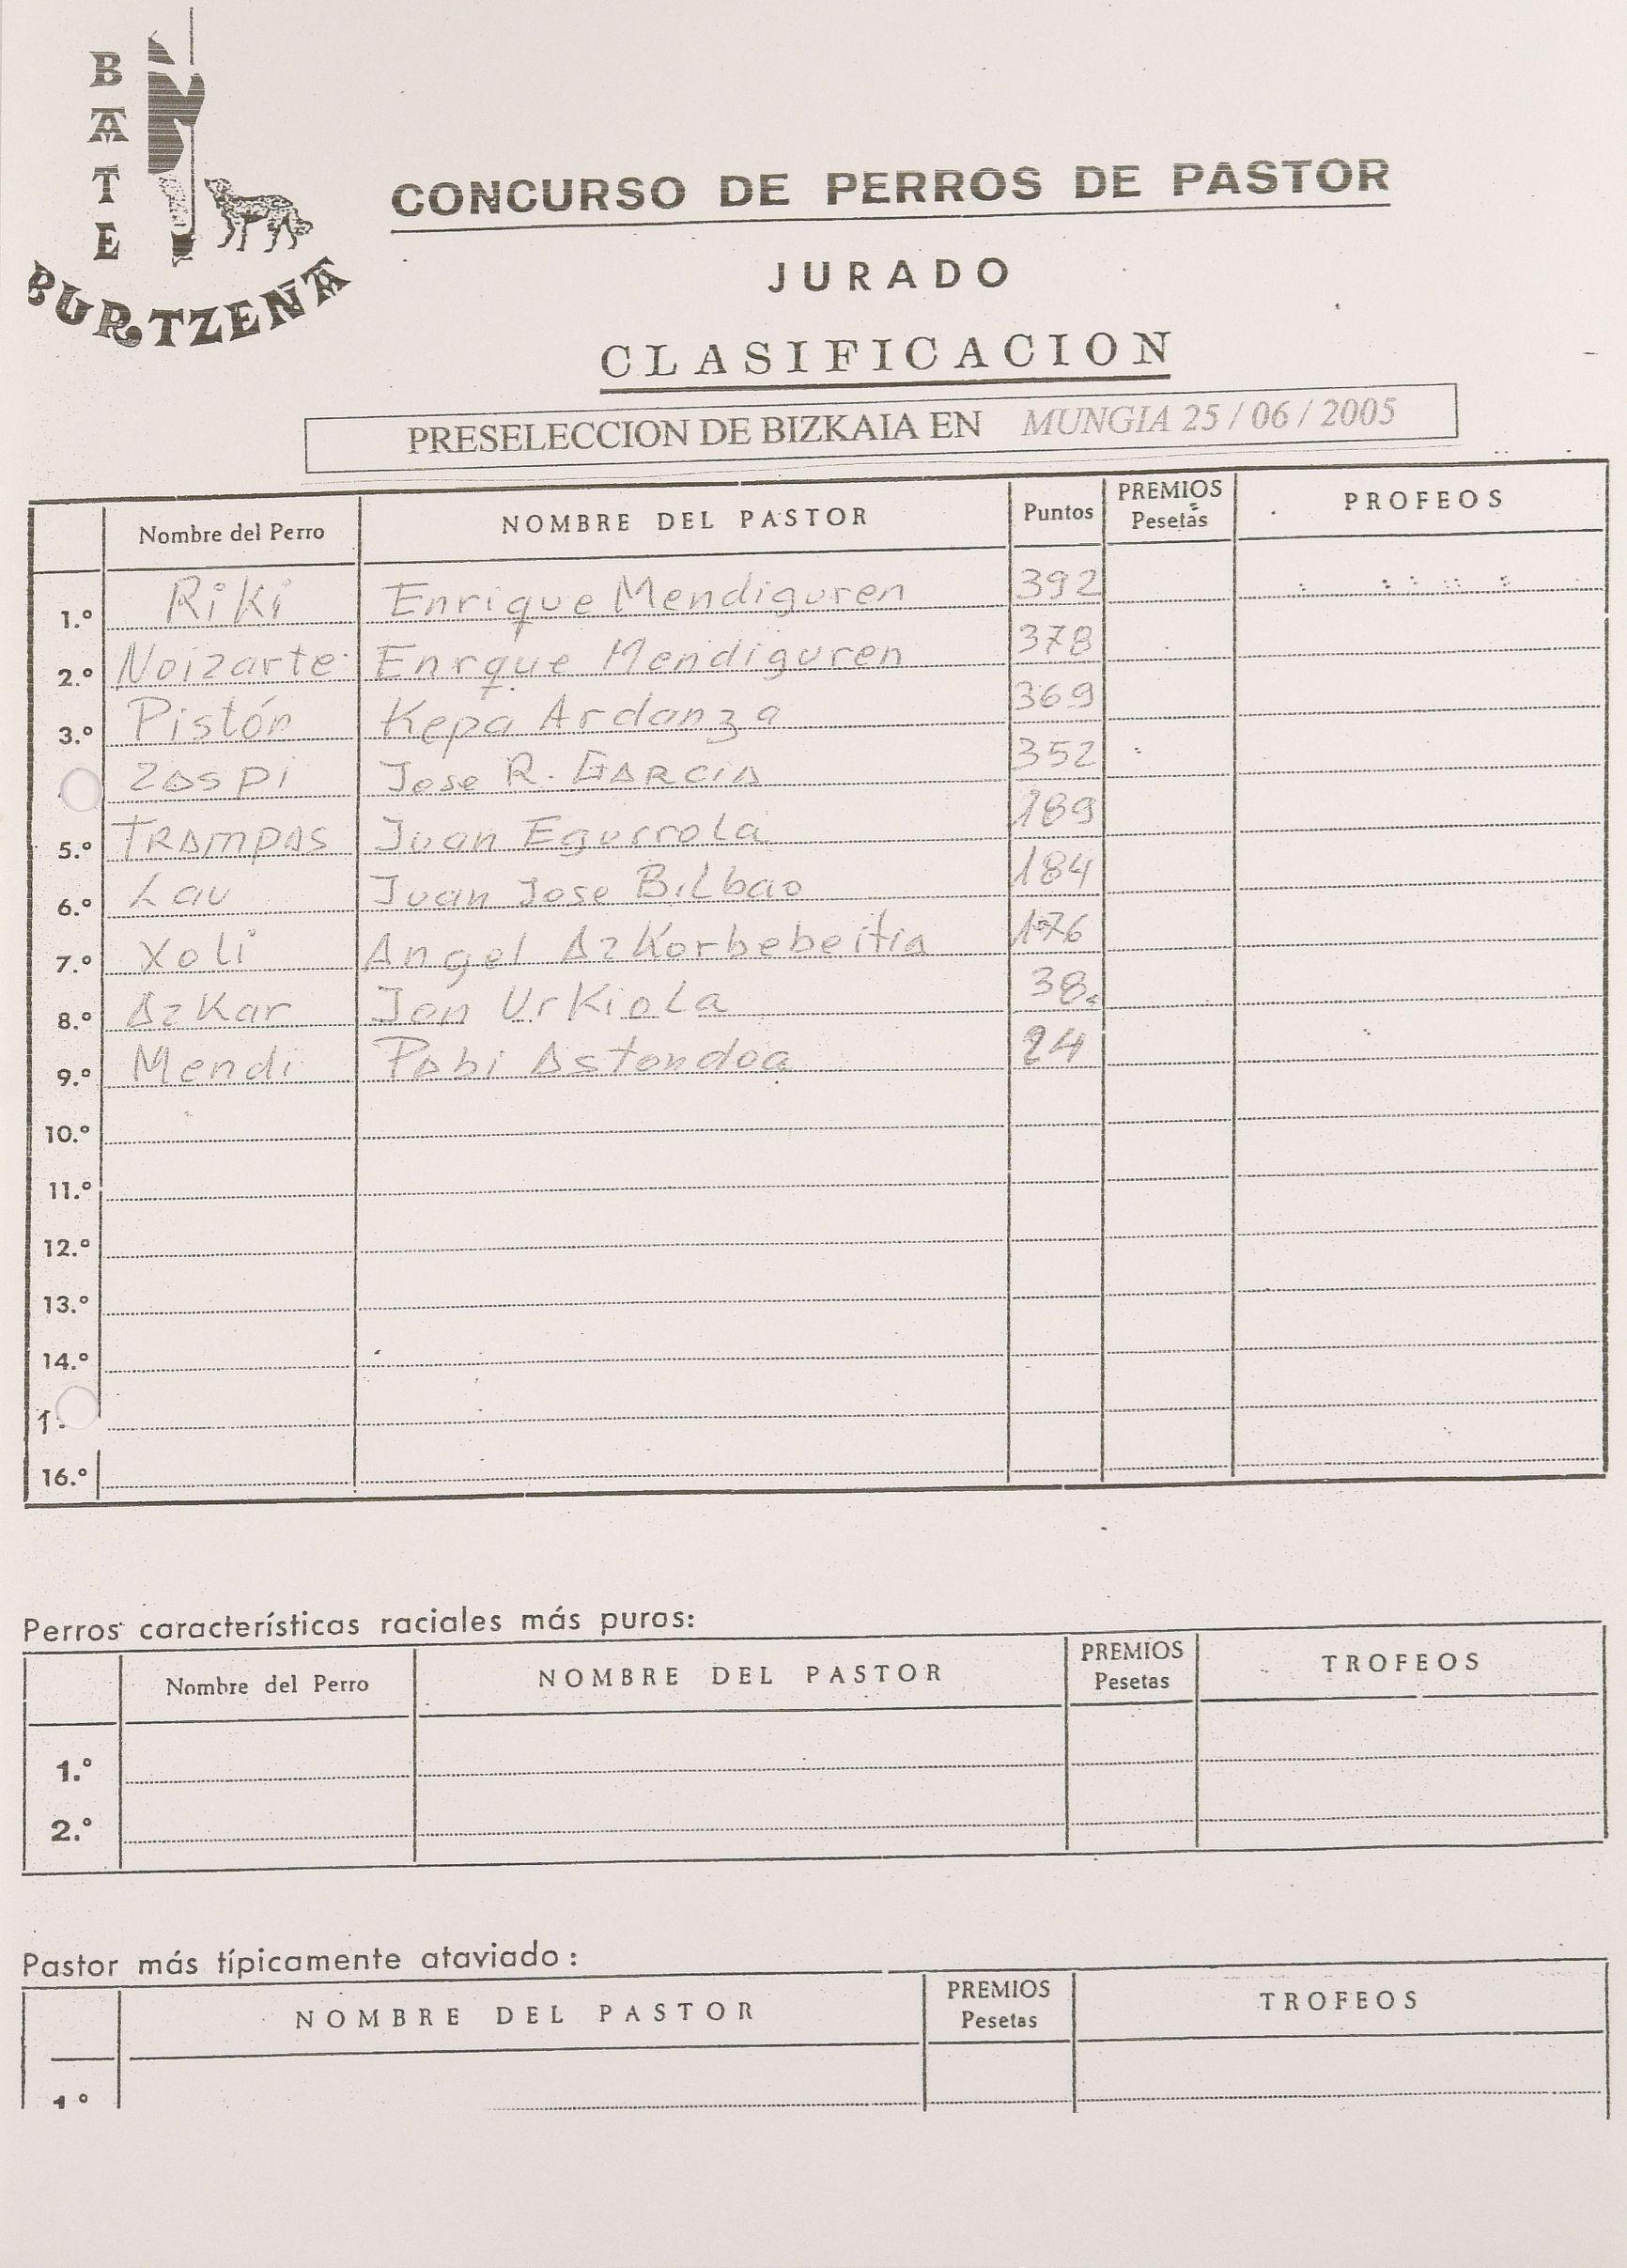 BATE
BURTZEÑA
CONCURSO DE PERROS DE PASTOR
JURADO
CLASIFICACION
PRESELECCION DE BIZKAIA EN MUNGIA 25 / 06 / 2005
Nombre del Perro NOMBRE DEL PASTOR Puntos PREMIOS Pesetas PROFEOS
1.º Riki Enrique Mendiguren 392
2.º Noizarte Enrque Mendiguren 378
3.º Pistón Kepa Ardanza 369
Zaspi Jose R. GARCIA 352
5.º TRAMPAS Juan Egurrola 189
6.º Lau Juan Jose Bilbao 184
7.º Xoli Angel Azkorbebeitia 176
8.º Azkar Jon Urkiola 38
9.º Mendi Pabi Astondoa 24
10.º
11.º
12.º
13.º
14.º
1
16.º
Perros características raciales más puros:
Nombre del Perro NOMBRE DEL PASTOR PREMIOS Pesetas TROFEOS
1.º
2.º
Pastor más típicamente ataviado:
NOMBRE DEL PASTOR PREMIOS Pesetas TROFEOS
1.º